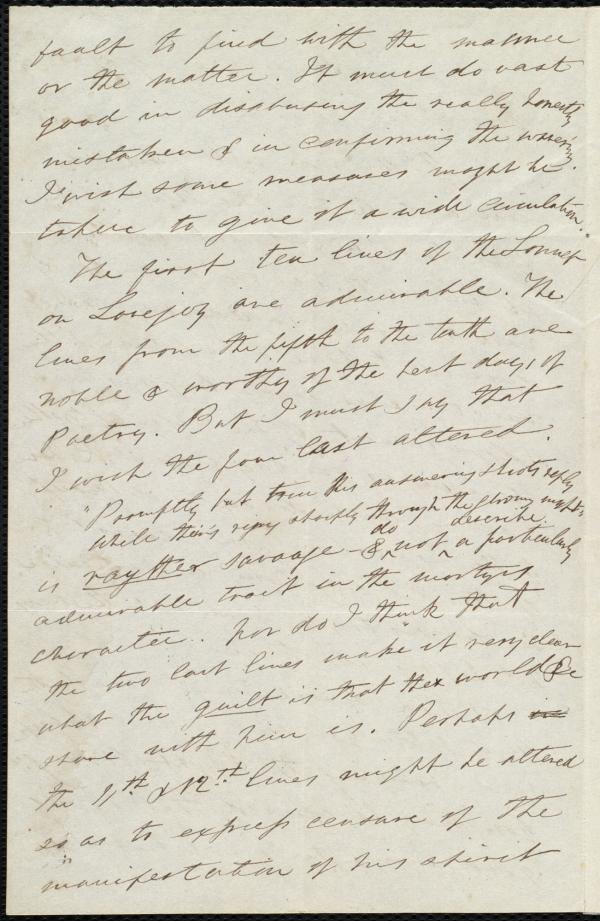 fault to find with the manner
or the matter. It must do vast
good in disabusing the really honestly
mistaken & in confirming the wavering.
I wish some measures might be
taken to give it a wide circulation.
The first ten lines of the Sonnet
on Lovejoy are admirable. The
lines from the fifth to the tenth are
noble & worthy of the best days of
Poetry. But I must say that
I wish the four last altered.
"Promptly but true his answering shots reply
While theirs ring sharply through the gloomy night"
is rayther savage & do not describe a particularly
admirable trait in the martyrs
character. Nor do I think that
the two last lines make it very clear
what the guilt is that the world &c
share with him is. Perhaps in
the 11th & 12th lines might be altered
so as to express censure of the
manifestation of his spirit
in